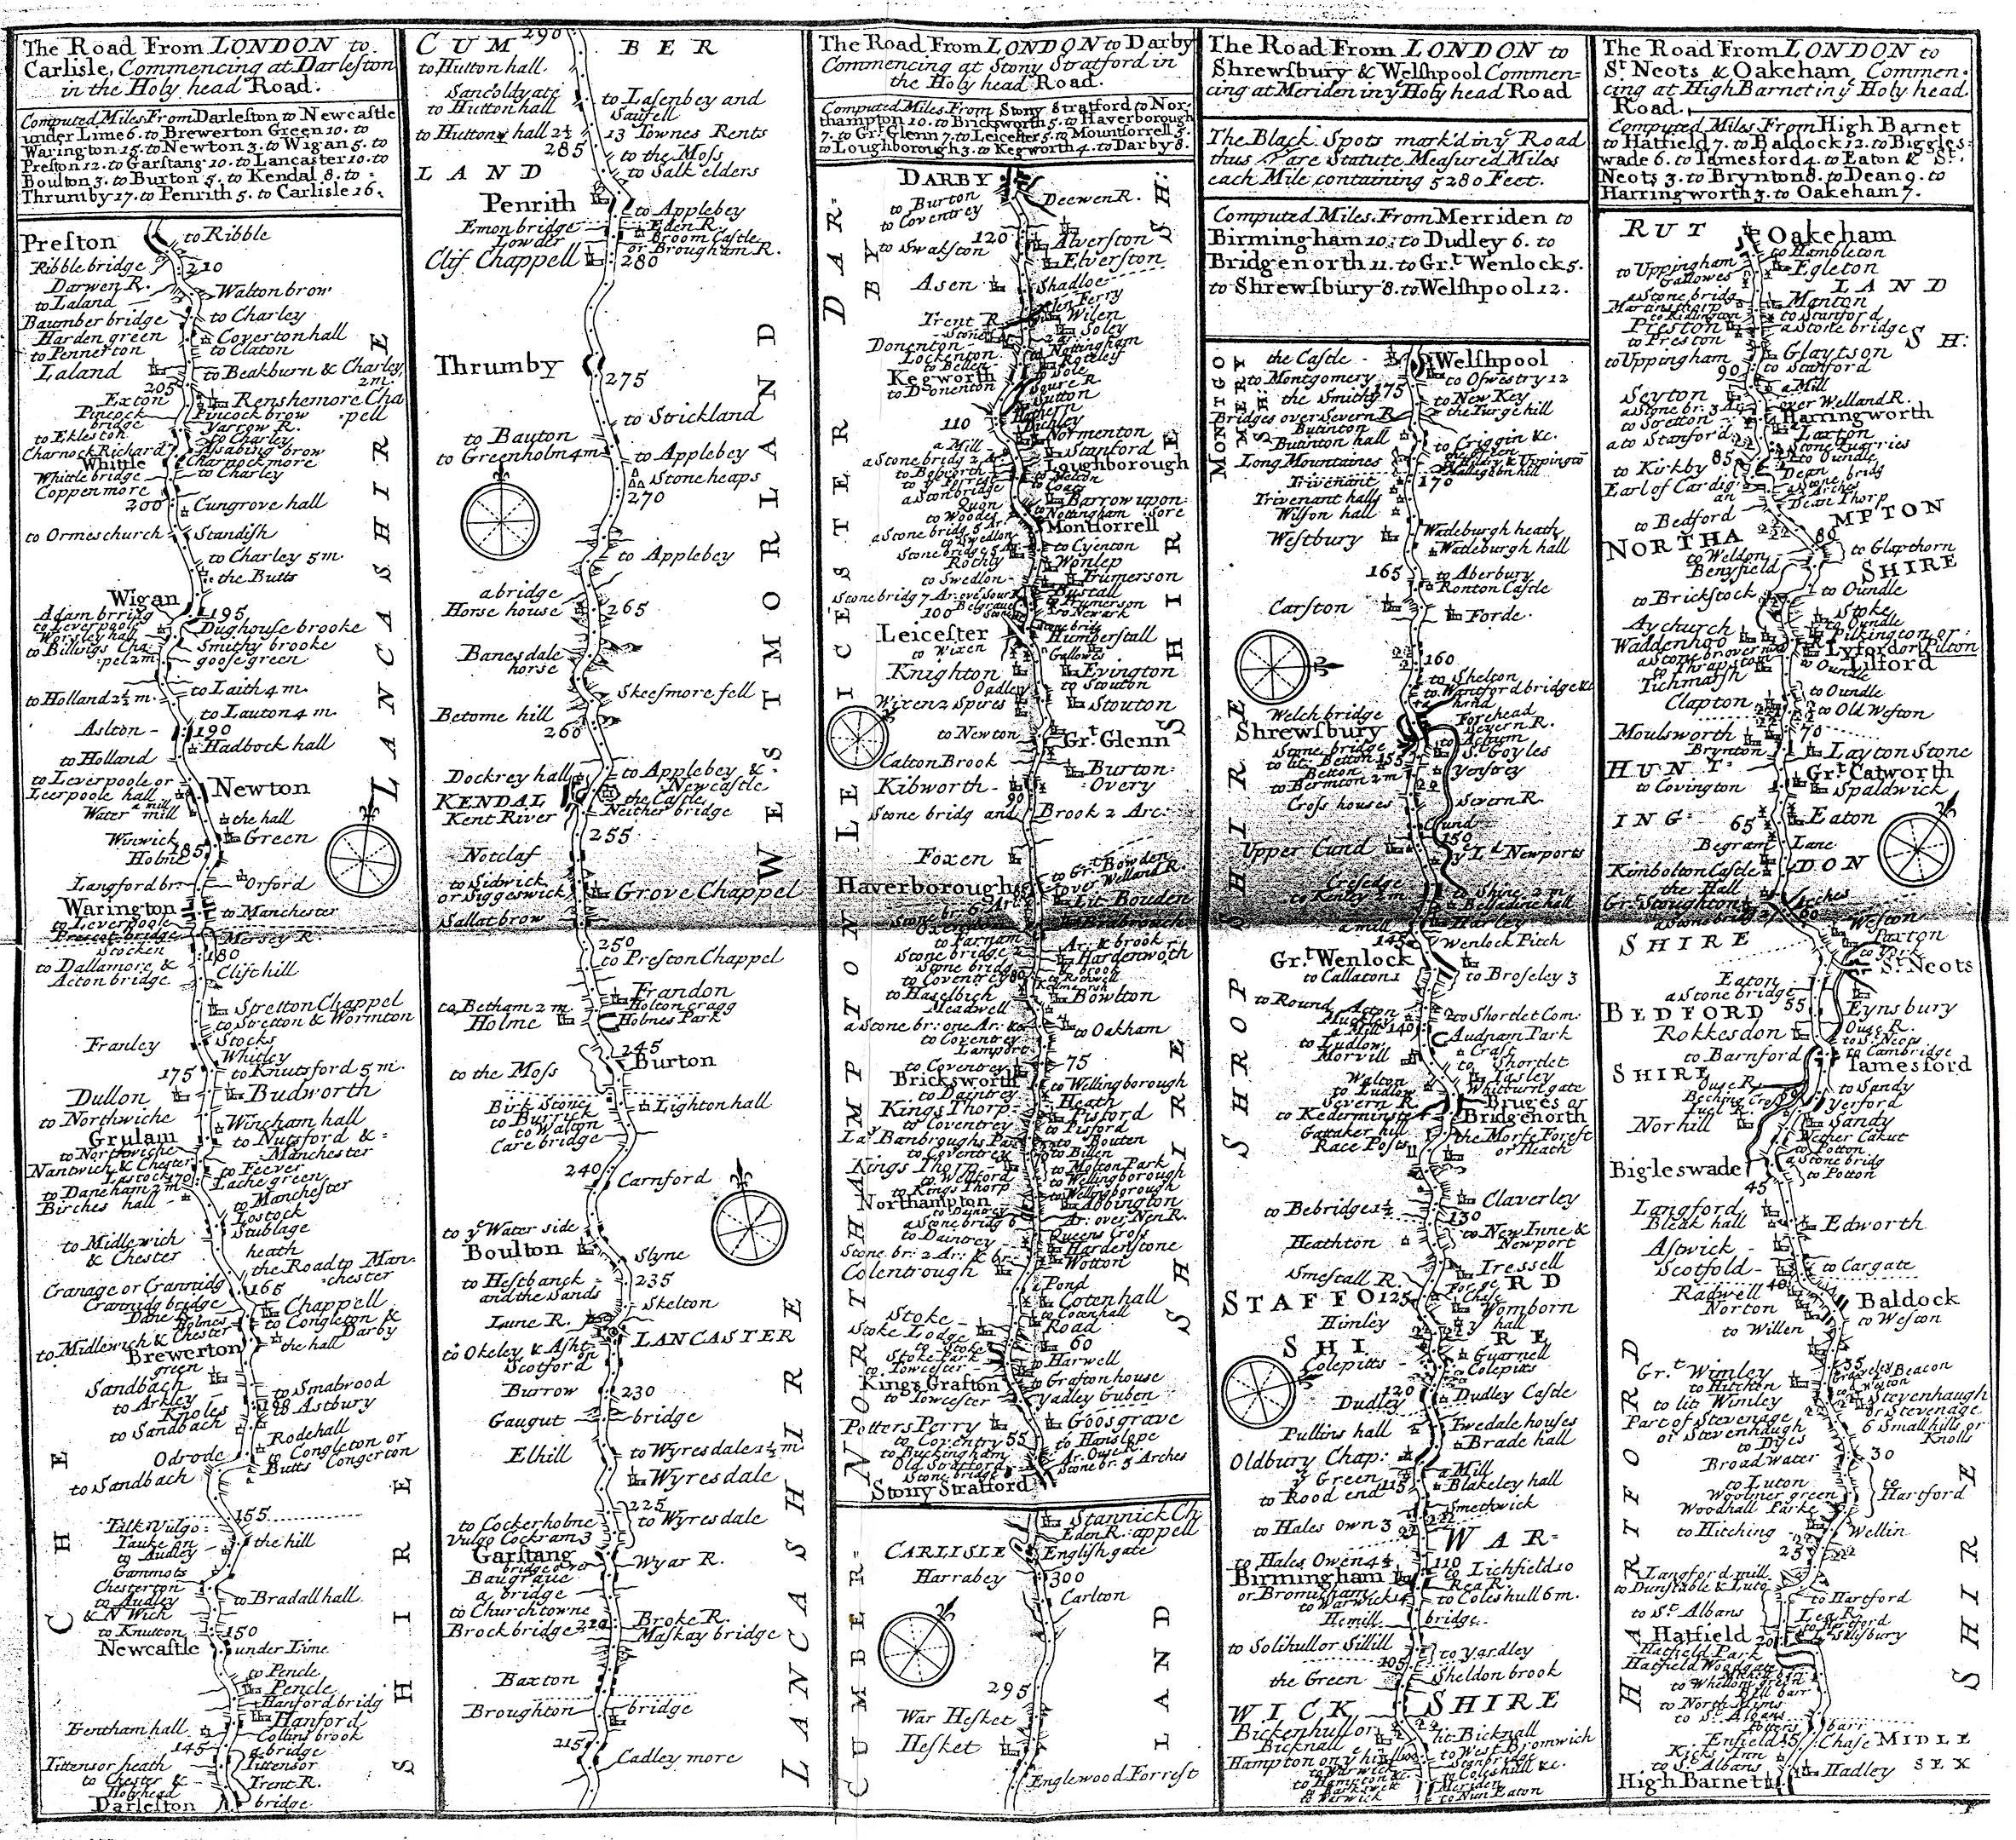 The Road From LONDON to
Carlisle, Commencing at Darleston
in the Holy head Road.
Computed Miles From Darleston to Newcastle
under Lime 6. to Brewerton Green 10. to
Warington 15. to Newton 3. to Wigan 5. to
Preston 12. to Garstang 10. to Lancaster 10. to
Boulton 3. to Burton 5. to Kendal 8. to
Thrumby 17. to Penrith 5. to Carlisle 16.
Preston
to Ribble
Ribble bridge
210
Darwen R.
Walton brow
to Laland
to Charley
Baumber bridge
Harden green
Coverton hall
to Pennerton
to Claton
Laland
to Beakburn & Charley
2m.
205
Exton
Renshemore Cha
pell
Pincock
bridge
Pincock brow
Yarrow R.
to Ekleston
to Charley
Charnock Richard
Whittle
Charnock more
Whittle bridge
to Charley
Coppenmore
200
Cungrove hall
to Ormeschurch
Standish
to Charley 5m.
the Butts
Wigan
195
to Leverpoole
Dughouse brooke
Worsley hall
Smithy brooke
to Billsigs Cha.
pel 2m
goose green
to Laith 4 m.
to Holland 2½ m.
to Lauton 4 m.
Aslton
190
Hadbock hall
to Holland
to Leverpoole or
Leerpoole hall
Newton
a mill
Water mill
the hall
Winwick
Green
185
Holme
Langford br.
Orford
Warington
to Manchester
to Leverpoole
Prescot bridge
Mersey R.
Stocken
180
to Dallamore &
Acton bridge
Clift hill
Stretton Chappel
to Stretton & Wormton
Franley
Stocks
Whitley
175
to Knutsford 5 m.
Dullon
Budworth
to Northwiche
Wincham hall
Grulam
to Nutsford &
Manchester
to Northwiche
Nantwich & Chester
to Feever
Lostock
170
Lache green
to Daneham 2 m.
Birches hall
to Manchester
Lostock
Stublage
heath
to Midlewich
& Chester
the Road to Man-
chester
Cranage or Crannidg
165
Crannidg bridge
Chappell
Dane R.
Holmes
to Congleton &
Darby
to Midlewich & Chester
Brewerton
green
the hall
Sandbach
to Smabrood
to Arkley
to Astbury
Knoles
to Sandbach
Rodehall
Odrode
Congleton or
Congerton
Butts
to Sandbach
155
Talk Vulgo
Tauke on
the hill
to Audley
Gammots
Chesterton
to Audley
& N Wich
to Bradall hall
to Knutton
150
Newcastle
under Lime
to Pencle
Pencle
Hanford bridg
Hanford
Fentham hall
Collins brook
145
a bridge
Tittensor heath
Tittensor
to Chester &
Holyhead
Trent R.
Darleston
bridge
LANCASHIRE
CHESHIRE
CUMBER
LAND
290
to Hutton hall
Sancoldyate
to Hutton hall
to Lasenbey and
Saufell
to Hutton hall 2½
13 Townes Rents
285
to the Moss
to Salk elders
Penrith
to Applebey
Emon bridge
Eden R.
Lowder
Broom Castle
or Brougham R.
Clif Chappell
280
Thrumby
275
to Strickland
to Bauton
to Greenholm 4m
to Applebey
Stone heaps
270
to Applebey
a bridge
Horse house
265
Banesdale
horse
Skeesmore fell
Betome hill
260
Dockrey hall
to Applebey &
Newcastle
KENDAL
the Castle
Kent River
Neither bridge
255
Notclaf
to Sidwick
or Siggeswick
Grove Chappel
Sallat brow
250
to Preston Chappel
Frandon
to Betham 2 m.
Holton cragg
Holme
Holmes Park
245
Burton
to the Moss
Birk Stone
to Burrick
Lighton hall
to Walton
Care bridge
240
Carnford
to ye Water side
Boulton
Slyne
to Hestbanck
and the Sands
235
Skelton
Lune R.
LANCASTER
to Okeley & Asht
on
Scotford
Burrow
230
Gaugut
bridge
Elhill
to Wyresdale 1½ m
Wyresdale
225
to Cockerholme
Vulgo Cockram 3
to Wyresdale
Garstang
Wyar R.
Baugrave
a bridge
to Churchtowne
Broke R.
Brock bridge
Maskay bridge
Baxton
Broughton
bridge
215
Cadley more
WESTMORLAND
LANCASHIRE
The Road From LONDON to Darby
Commencing at Stony Stratford in
the Holy head Road.
Computed Miles From Stony Stratford to Nor-
thampton 10. to Bricksworth 5. to Haverborough
7. to Gr. Glenn 7. to Leicester 5. to Mountsorrell 5.
to Loughborough 3. to Kegworth 4. to Darby 8.
DARBY
to Burton
to Coventrey
Deewen R.
120
Alverston
to Swalston
Elverston
Asen
Shadloe
Trent R.
Wilen
Soley
Donenton
Lockenton
to Nottingham
Kegworth
to Donenton
Soure R.
Sutton
110
Normenton
a Mill
Stanford
a Stone bridg
Loughborough
a Ston bridge
Quon
Barrow upon
Sore
to Woodes
Nottingham
Montsorrell
to Swedlon
to Cyenton
Stone bridg
Rothly
Wonlep
to Swedlon
Trumerson
Bustall
100
Leicester
to Wixen
Humberstall
Gallowes
Knighton
Evington
Oadley
to Stouton
Wixen 2 Spires
Stouton
to Newton
Grt. Glenn
Calton Brook
Burton
Overy
Kibworth
90
Stone bridg and
Brook 2 Arc.
Foxen
to Grt. Bowden
over Welland R.
Haverborough
Lit. Bouden
Oxendon
to Farnam
Ar. & brook
Stone bridge
Hardenworth
Stone bridg
a brook
to Coventrey
80
to Rothwell
to Haselbich
Bowlton
Meadwell
a Stone br: one Ar: &c.
to Oakham
to Coventrey
Lamport
75
to Coventrey
Bricksworth
to Wellingborough
to Daintrey
Heath
Kings Thorp
Pisford
to Coventrey
to Pisford
La. Banbroughs Pa
to Bouten
to Coventrey
to Billen
Kings Thorp
to Molton Park
to Welford
to Wellingborough
to Kings Thorp
to Wellingborough
Northampton
Abbington
a Stone bridg 6
Ar: over Nen R.
to Daintrey
Queens Cross
Stone br: 2 Ar: & br
Hardenstone
Colentrough
Wotton
Pond
Cotenhall
Stoke
to Coenhall
Stoke Lodge
Road
to Stoke
60
Stoke Park
to Towcester
to Harwell
Kings Grafton
to Grafton house
to Towcester
Yadley Guben
Potters Perry
Goosgrave
to Coventry
55
to Hanslope
to Buckingham
Ar. Ouse R.
Old Stratford
Stone bridge
Stone br: 5 Arches
Stony Stratford
DARBYSH:
LEICESTERSHIRE
NORTHAMPTONSHIRE
Stannick Ch
appell
Eden R.
CARLISLE
English gate
Harrabey
300
Carlton
295
War Hesket
Hesket
Englewood Forrest
CUMBERLAND
The Road From LONDON to
Shrewsbury & Welshpool Commen-
cing at Meriden in ye Holy head Road
The Black Spots mark'd in ye Road
thus are Statute Measured Miles
each Mile containing 5280 Feet.
Computed Miles From Merriden to
Birmingham 10: to Dudley 6. to
Bridgenorth 11. to Gr.t Wenlock 5.
to Shrewsbury 8. to Welshpool 12.
the Castle
Welshpool
to Montgomery
to Oswestry 12
the Smithy
175
to New Key
the Furge hill
Bridges over Severn R.
Butinton
Butinton hall
to Criggin &c.
Long Mountaines
Trivenant
Malleghon hill
170
Trivenant hall
Wilson hall
Westbury
Wadeburgh heath
Wadeburgh hall
165
to Aberbury
Ronton Castle
Carston
Forde
160
to Shelton
to Wantford bridge &c
Welch bridge
Forehead
Severn R.
Shrewsbury
Stone bridge
to Acbum
St. Goyles
to lit: Betton
155
Betton
Yensrey
to Bermton 2m
Cross houses
Severn R.
Cund
150
Upper Cund
ye Ld. Newports
Cresedge
to Kenley 2 m.
to Shine 2 m
Belladine hall
a mill
Harley
145
Wenlock Pitch
Grt. Wenlock
to Callaton 1
to Broseley 3
to Round Acton
to Shortlet Com.
140
Audnam Park
to Ludlow
Morvill
to Shortlet
Walton
Tasley
to Ludlow
Whitburn gate
Severn R.
Bruges or
Bridgenorth
to Kederminster
Gattaker hill
the Morfe Forest
or Heath
Race Posts
to Bebridge 1½
Claverley
130
to New Inne &
Newport
Heathton
Tressell
Smestall R.
Forge
125
Chase
Womborn
Himley
ye hall
Guarnell
Colepitts
Colepits
120
Dudley
Dudley Castle
Pullins hall
Twedale houses
Brade hall
Oldbury Chap:
ye Green
a Mill
to Rood end
115
Blakeley hall
Smethwick
to Hales Own 3
to Hales Owen 4½
110
to Lichfield 10
Birmingham
Rea R.
or Bromicham
to Warwick 14
to Coleshull 6 m.
Hemill
bridge
to Solihull or Sillill
to Yardley
105
the Green
Sheldon brook
Bickenhull or
Bicknall
lit: Bicknall
to West Bromwich
Hampton on ye hill
100
Stonbridge
to Warwick
to Coleshull &c.
Meriden
to Nun Eaton
MONTGOMERYSH:
SHROPSHIRE
STAFFORD
SHIRE
WAR-
WICK SHIRE
The Road From LONDON to
St. Neots & Oakeham Commen-
cing at High Barnet in ye Holy head
Road.
Computed Miles From High Barnet
to Hatfield 7. to Baldock 12. to Biggles-
wade 6. to Tamesford 4. to Eaton & St.
Neots 3. to Brynton 8. to Dean 9. to
Harringworth 3. to Oakeham 7.
RUT
LAND
SH:
Oakeham
to Hambleton
to Uppingham
Egleton
Gallowes
a Stone bridg
Manton
Martinsthorp
to Ridlington
to Stanford
Preston
a Stone bridge
to Preston
Glaytson
to Uppingham
to Stanford
90
Seyton
a Mill
over Welland R.
a Stone br. 3 Ar.
Harringworth
to Stretton
Laxton
a to Stanford
Stone Quarries
to Oundle
to Kirkby
85
Dean
Earl of Cardig
an
a Stone bridg
2 Arches
Dean Thorp
to Bedford
NORTHA
MPTON
SHIRE
80
to Glapthorn
to Weldon
Benyfield
to Oundle
to Brickstock
Stoke
to Oundle
Aychurch
Pilkington or
Waddenhoo
Lyford or Pilton
a Stone br over
Lilford
to Thrapston
to Oundle
Tichmarsh
to Oundle
Clapton
to Old Weston
Moulsworth
70
Brynton
Layton Stone
HUNT-
ING-
DON
SHIRE
Grt. Catworth
to Covington
Spaldwick
Eaton
65
Begram
Lane
Kimbolton Castle
the Hall
Grt. Stoughton
Arches
60
Weston
Paxton
to York
Eaton
St. Neots
a Stone bridge
55
Eynsbury
BEDFORD
SHIRE
Rokkesdon
Ouse R.
to St. Neots
to Barnford
to Cambridge
Tamesford
Ouse R.
to Sandy
Beching Cross
Yerford
Ivel R.
Norhill
Sandy
Nether Cakut
to Potton
a Stone bridg
Bigleswade
to Potton
45
Langford
Bleak hall
Edworth
Astwick
Scotfold
to Cargate
40
Radwell
Norton
Baldock
to Willen
to Weston
35
Graveley Beacon
Grt. Wimley
to Hitchen
to Weston
to lit: Wimley
Stevenhaugh
or Stevenage
Part of Stevenage
or Stevenhaugh
6 Small hills or
Knolls
to Dyes
Broad water
30
to Luton
to
Hartford
Wormer green
Woodhall Parke
to Hitching
Wellin
25
Langford mill
to Dunstable & Luto
to Hartford
to St. Albans
Lea R.
to Hartford
Hatfield
20
E. Salisbury
Hatfield Park
Hatfield Woodgate
to Whellom green
Bell barr
to North Mims
to St. Albans
Potters
barr
Enfield
15
Chase
Kicks Inn
to St. Albans
High Barnet
Hadley
MIDLE
SEX
HARTFORD
SHIRE